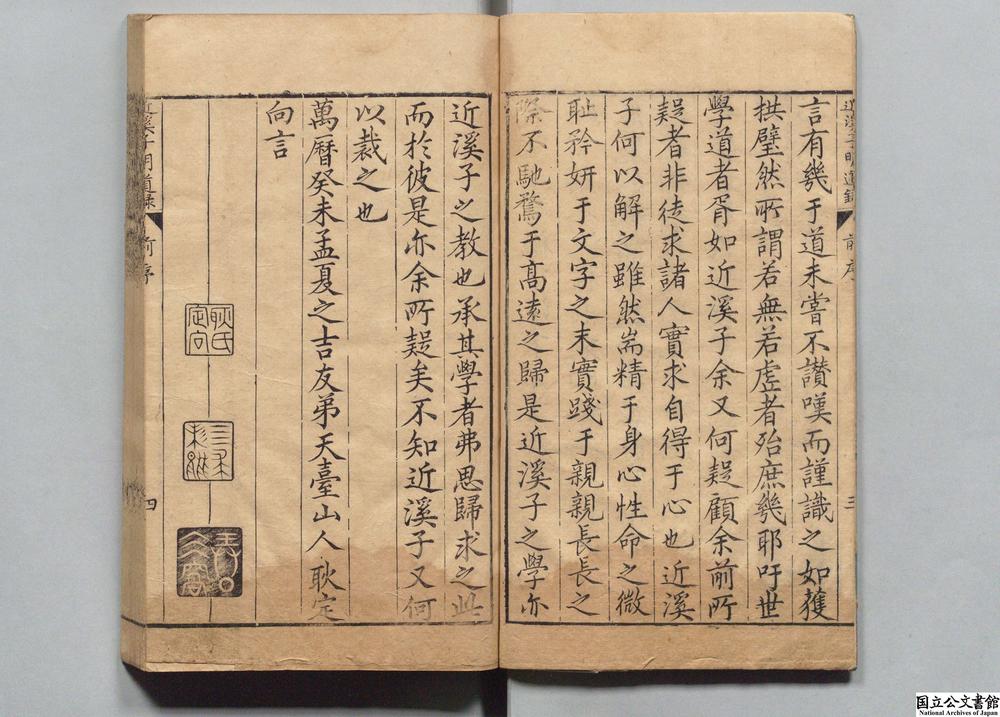 言有幾于道未嘗不讃嘆而謹識之如獲
拱璧然所謂若無若虗者殆庶幾耶吁世
學道者胥如近溪子余又何疑顧余前所
疑者非徒求諸人實求自得于心也近溪
子何以解之雖然耑精于身心性命之微
耻矜妍于文字之末實踐于親親長長之
際不馳騖于髙遠之歸是近溪子之學亦
近溪子之教也承其學者弗思歸求之此
而於彼是亦余所疑矣不知近溪子又何
以裁之也
萬曆癸未孟夏之吉友弟天臺山人耿定
向言
近溪子明道録
前序
三
近溪子明道録
前序
四
耿氏定向
国立公文書館
National Archives of Japan